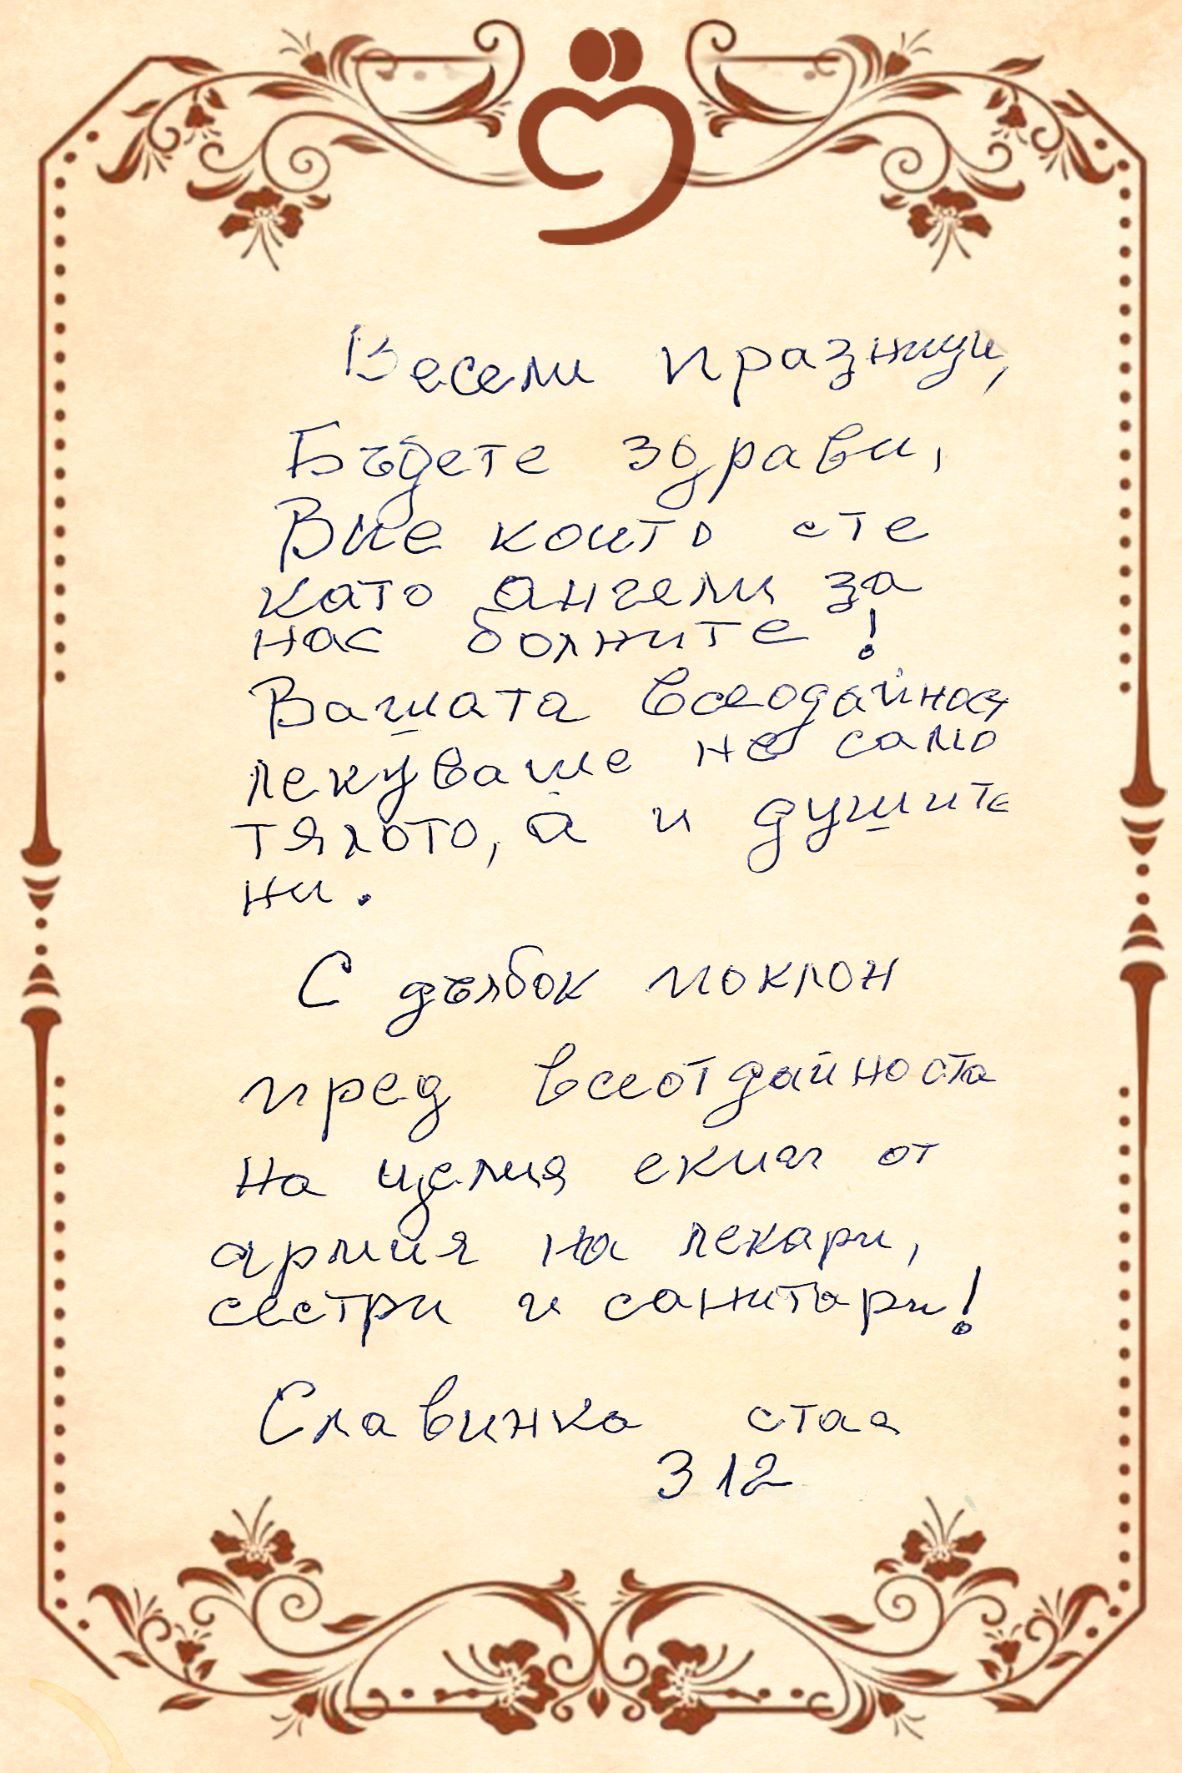 Весели празници,
Бъдете здрави,
Вие които сте
като ангели за
нас болните!
Вашата всеодайност
лекуваше не само
тялото, а и душите
ни.
С дълбок поклон
пред всеотдайноста
на целия екип от
армия на лекари,
сестри и санитари!
Славинка стая
312